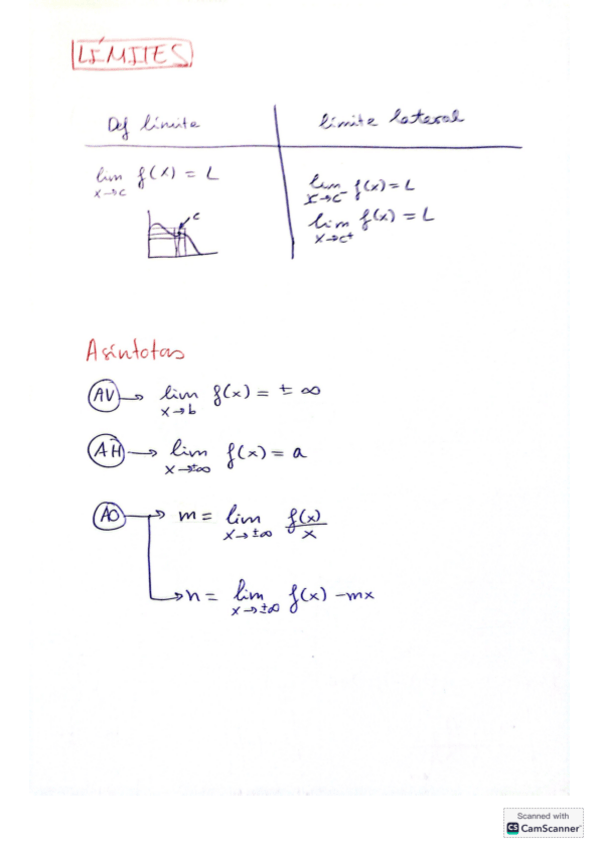 LÍMITES
Def límite
límite lateral
lim f(x) = L
x→c
lim f(x) = L
x→c⁻
lim f(x) = L
x→c⁺
c
Asíntotas
AV → lim f(x) = ± ∞
x→b
AH → lim f(x) = a
x→±∞
AO → m = lim f(x)/x
x→±∞
→ n = lim f(x) - mx
x→±∞
Scanned with
CS CamScanner